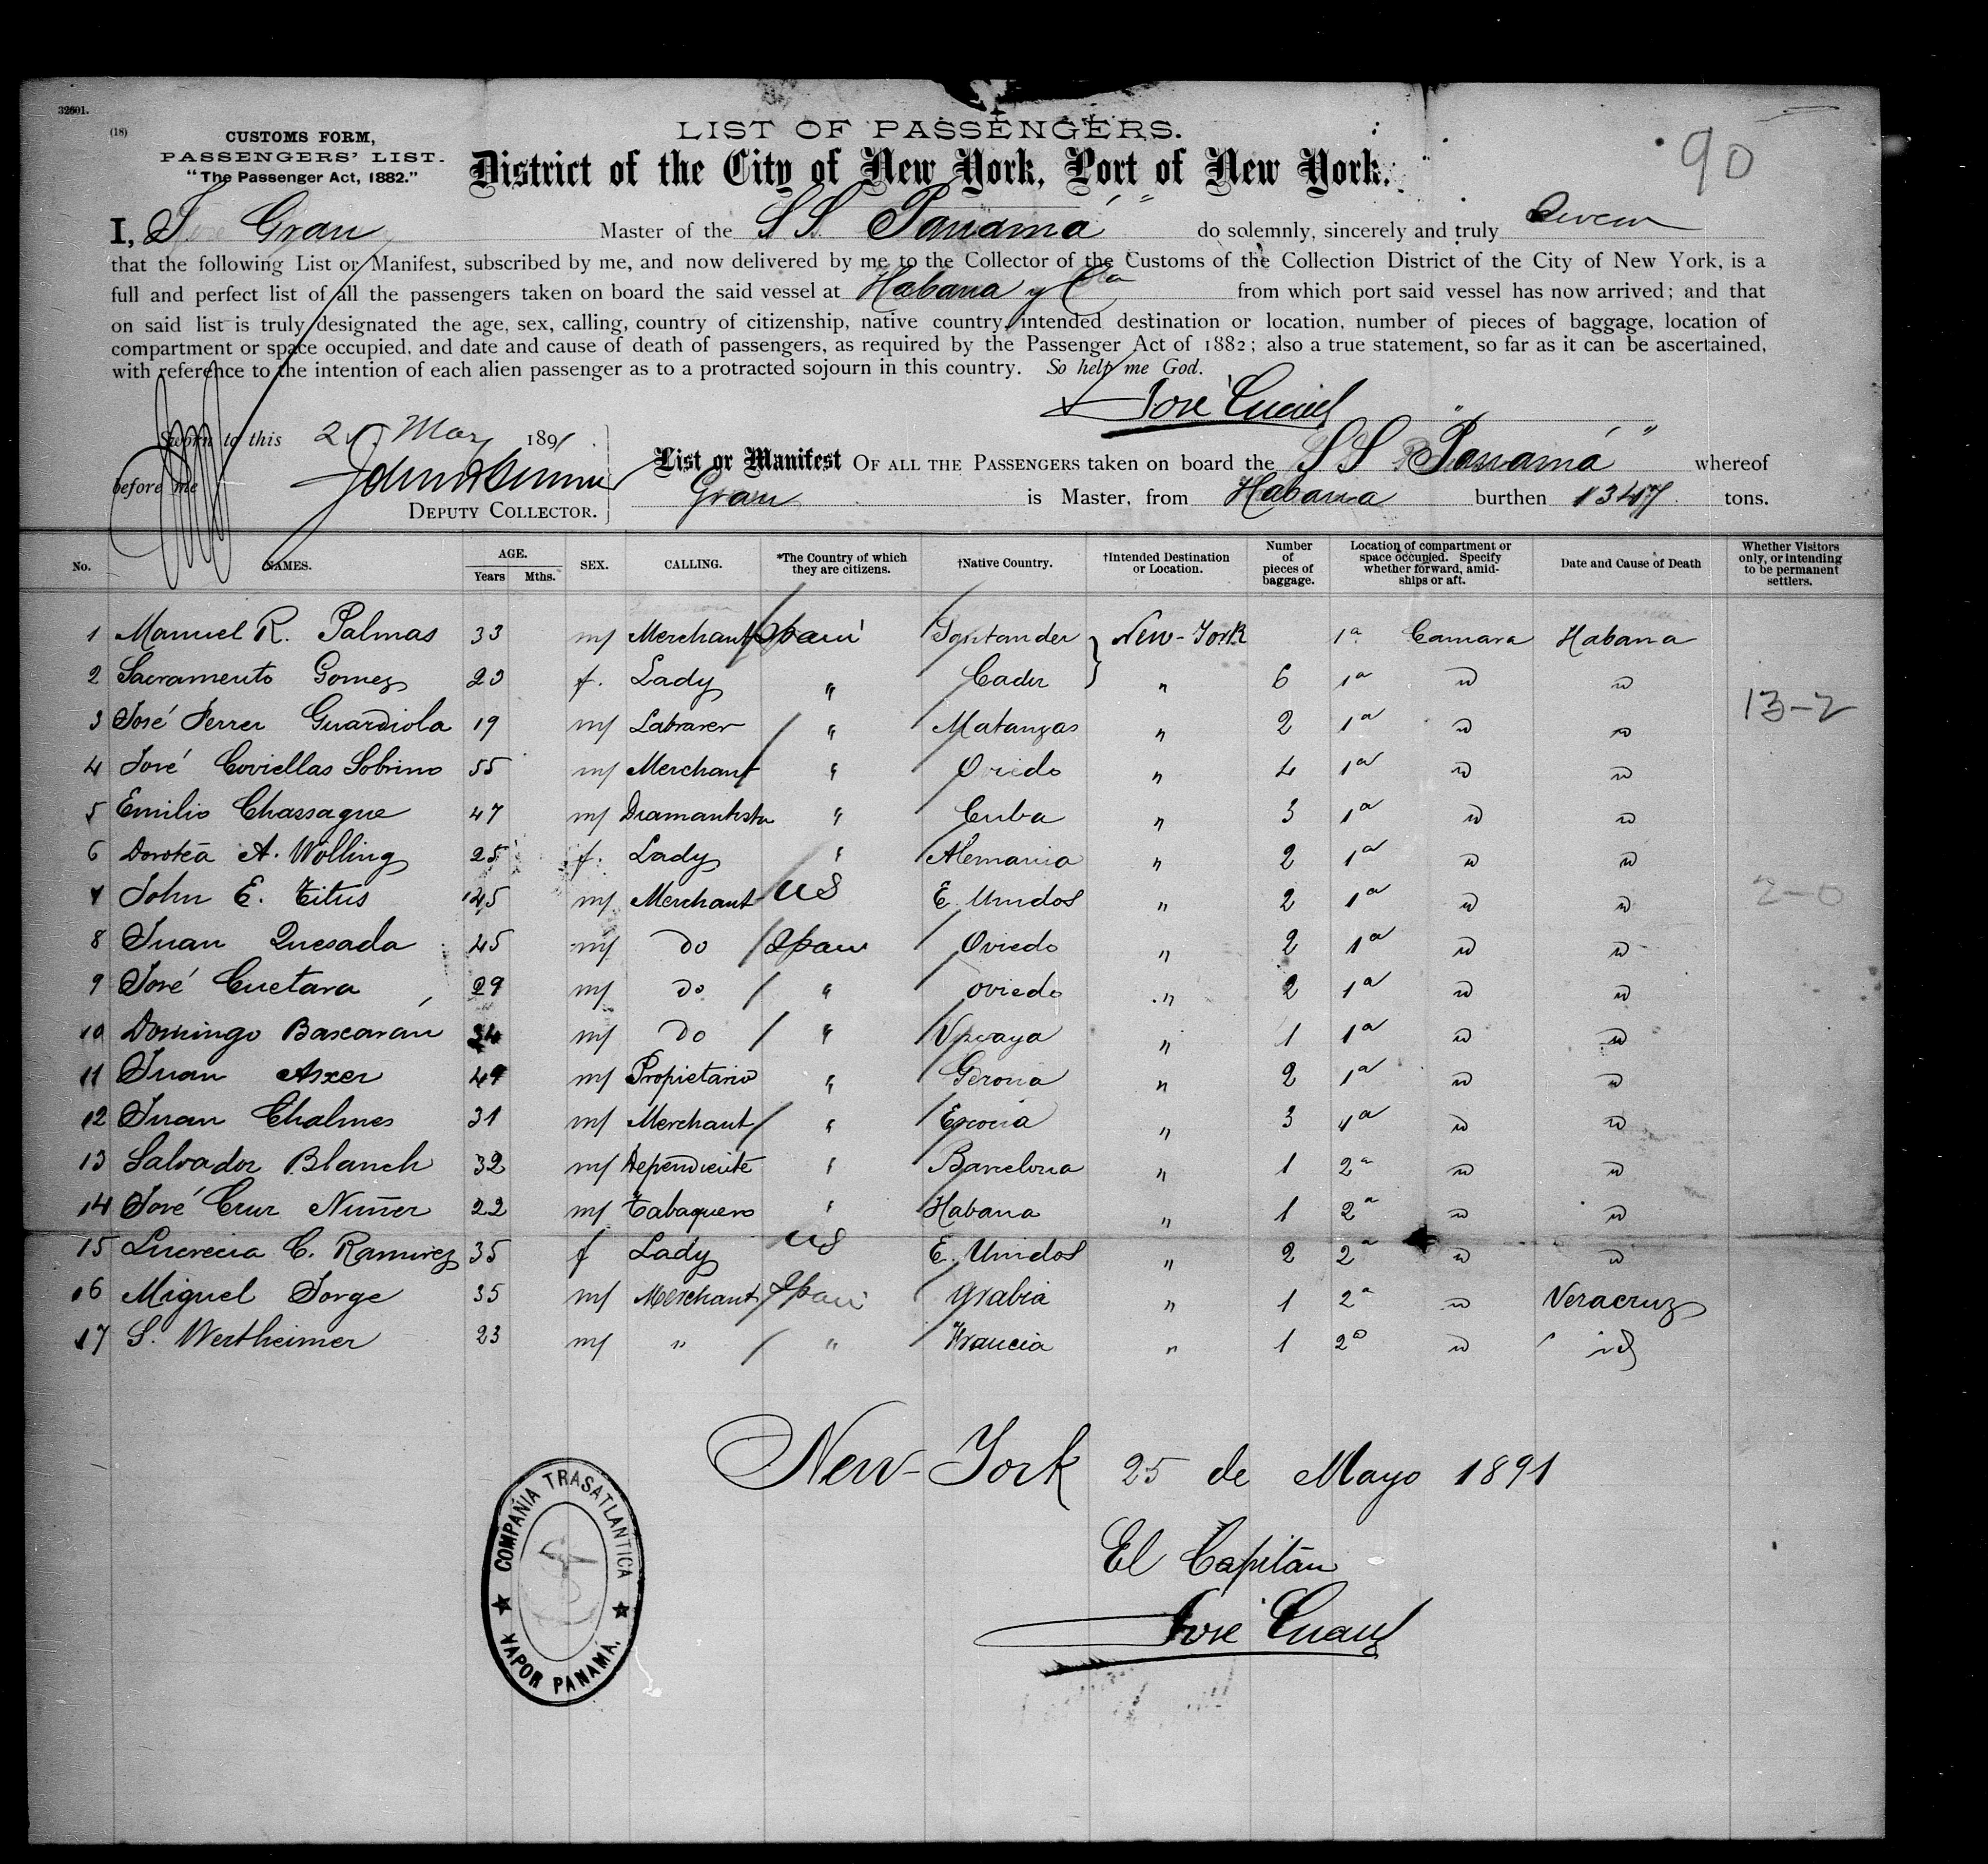 32601.
(18)
CUSTOMS FORM,
PASSENGERS' LIST.
"The Passenger Act, 1882."
LIST OF PASSENGERS.
District of the City of New York, Port of New York.
90
I, J Grau Master of the SS "Panamá" do solemnly, sincerely and truly swear
that the following List or Manifest, subscribed by me, and now delivered by me to the Collector of the Customs of the Collection District of the City of New York, is a
full and perfect list of all the passengers taken on board the said vessel at Habana y from which port said vessel has now arrived; and that
on said list is truly designated the age, sex, calling, country of citizenship, native country, intended destination or location, number of pieces of baggage, location of
compartment or space occupied, and date and cause of death of passengers, as required by the Passenger Act of 1882; also a true statement, so far as it can be ascertained,
with reference to the intention of each alien passenger as to a protracted sojourn in this country. So help me God.
José
Sworn to this May 1891
before me
DEPUTY COLLECTOR.
List or Manifest OF ALL THE PASSENGERS taken on board the SS "Panamá" whereof
Grau is Master, from Habana burthen 1347 tons.
No. NAMES. AGE. Years Mths. SEX. CALLING. *The Country of which they are citizens. †Native Country. †Intended Destination or Location. Number of pieces of baggage. Location of compartment or space occupied. Specify whether forward, amidships or aft. Date and Cause of Death Whether Visitors only, or intending to be permanent settlers.
1 Manuel R. Palmas 33 m Merchant Spain Santander New-York 1a Camara Habana
2 Sacramento Gomez 23 f. Lady " Cadiz " 6 1a " "
13-2
3 José Ferrer Guardiola 19 m Labrarer " Matanzas " 2 1a " "
4 José Coviellas Sobrino 55 m Merchant " Oviedo " 4 1a " "
5 Emilio Chassagne 47 m Diamantista " Cuba " 3 1a " "
6 Dorotéa A. Wölling 25 f. Lady " Alemania " 2 1a " "
7 John E. Titus 45 m Merchant US E. Unidos " 2 1a " "
2-0
8 Juan Quesada 45 m Do Spain Oviedo " 2 1a " "
9 José Cuetara 29 m Do " Oviedo " 2 1a " "
10 Domingo Bascarán 34 m Do " Vizcaya " 1 1a " "
11 Juan Axer 49 m Propietario " Gerona " 2 1a " "
12 Juan Chalmes 31 m Merchant " Escocia " 3 1a " "
13 Salvador Blanch 32 m Dependiente " Barcelona " 1 2a " "
14 José Cruz Nuñez 22 m Tabaquero " Habana " 1 2a " "
15 Lucrecia C. Ramirez 35 f Lady US E. Unidos " 2 2a " "
16 Miguel Jorge 35 m Merchant Spain Arabia " 1 2a " Veracruz
17 S. Wertheimer 23 m " " Francia " 1 2a " id
New-York 25 de Mayo 1891
El Capitán
José
COMPAÑIA TRASATLANTICA
VAPOR PANAMÁ.